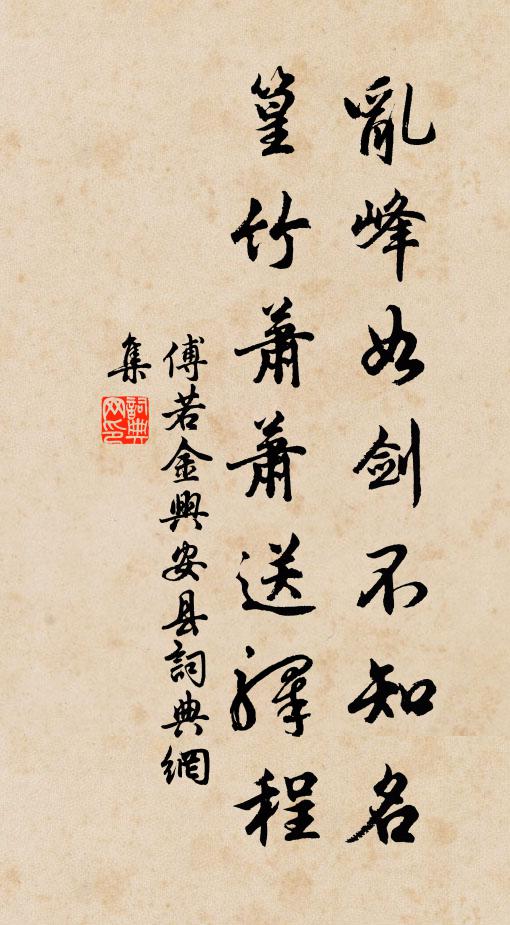 亂峰如剑不知名
篁竹蕭蕭送驛程
傅若金興安县詞典網
集
詞典网印